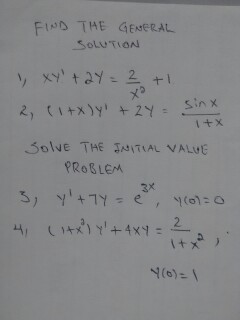 FIND THE GENERAL
SOLUTION
1, xy' + 2y = 2/x² + 1
2, (1+x)y' + 2y = sin x/1+x
SOLVE THE INITIAL VALUE
PROBLEM
3, y' + 7y = e^3x, y(0)=0
4, (1+x²)y' + 4xy = 2/1+x²,
y(0)=1